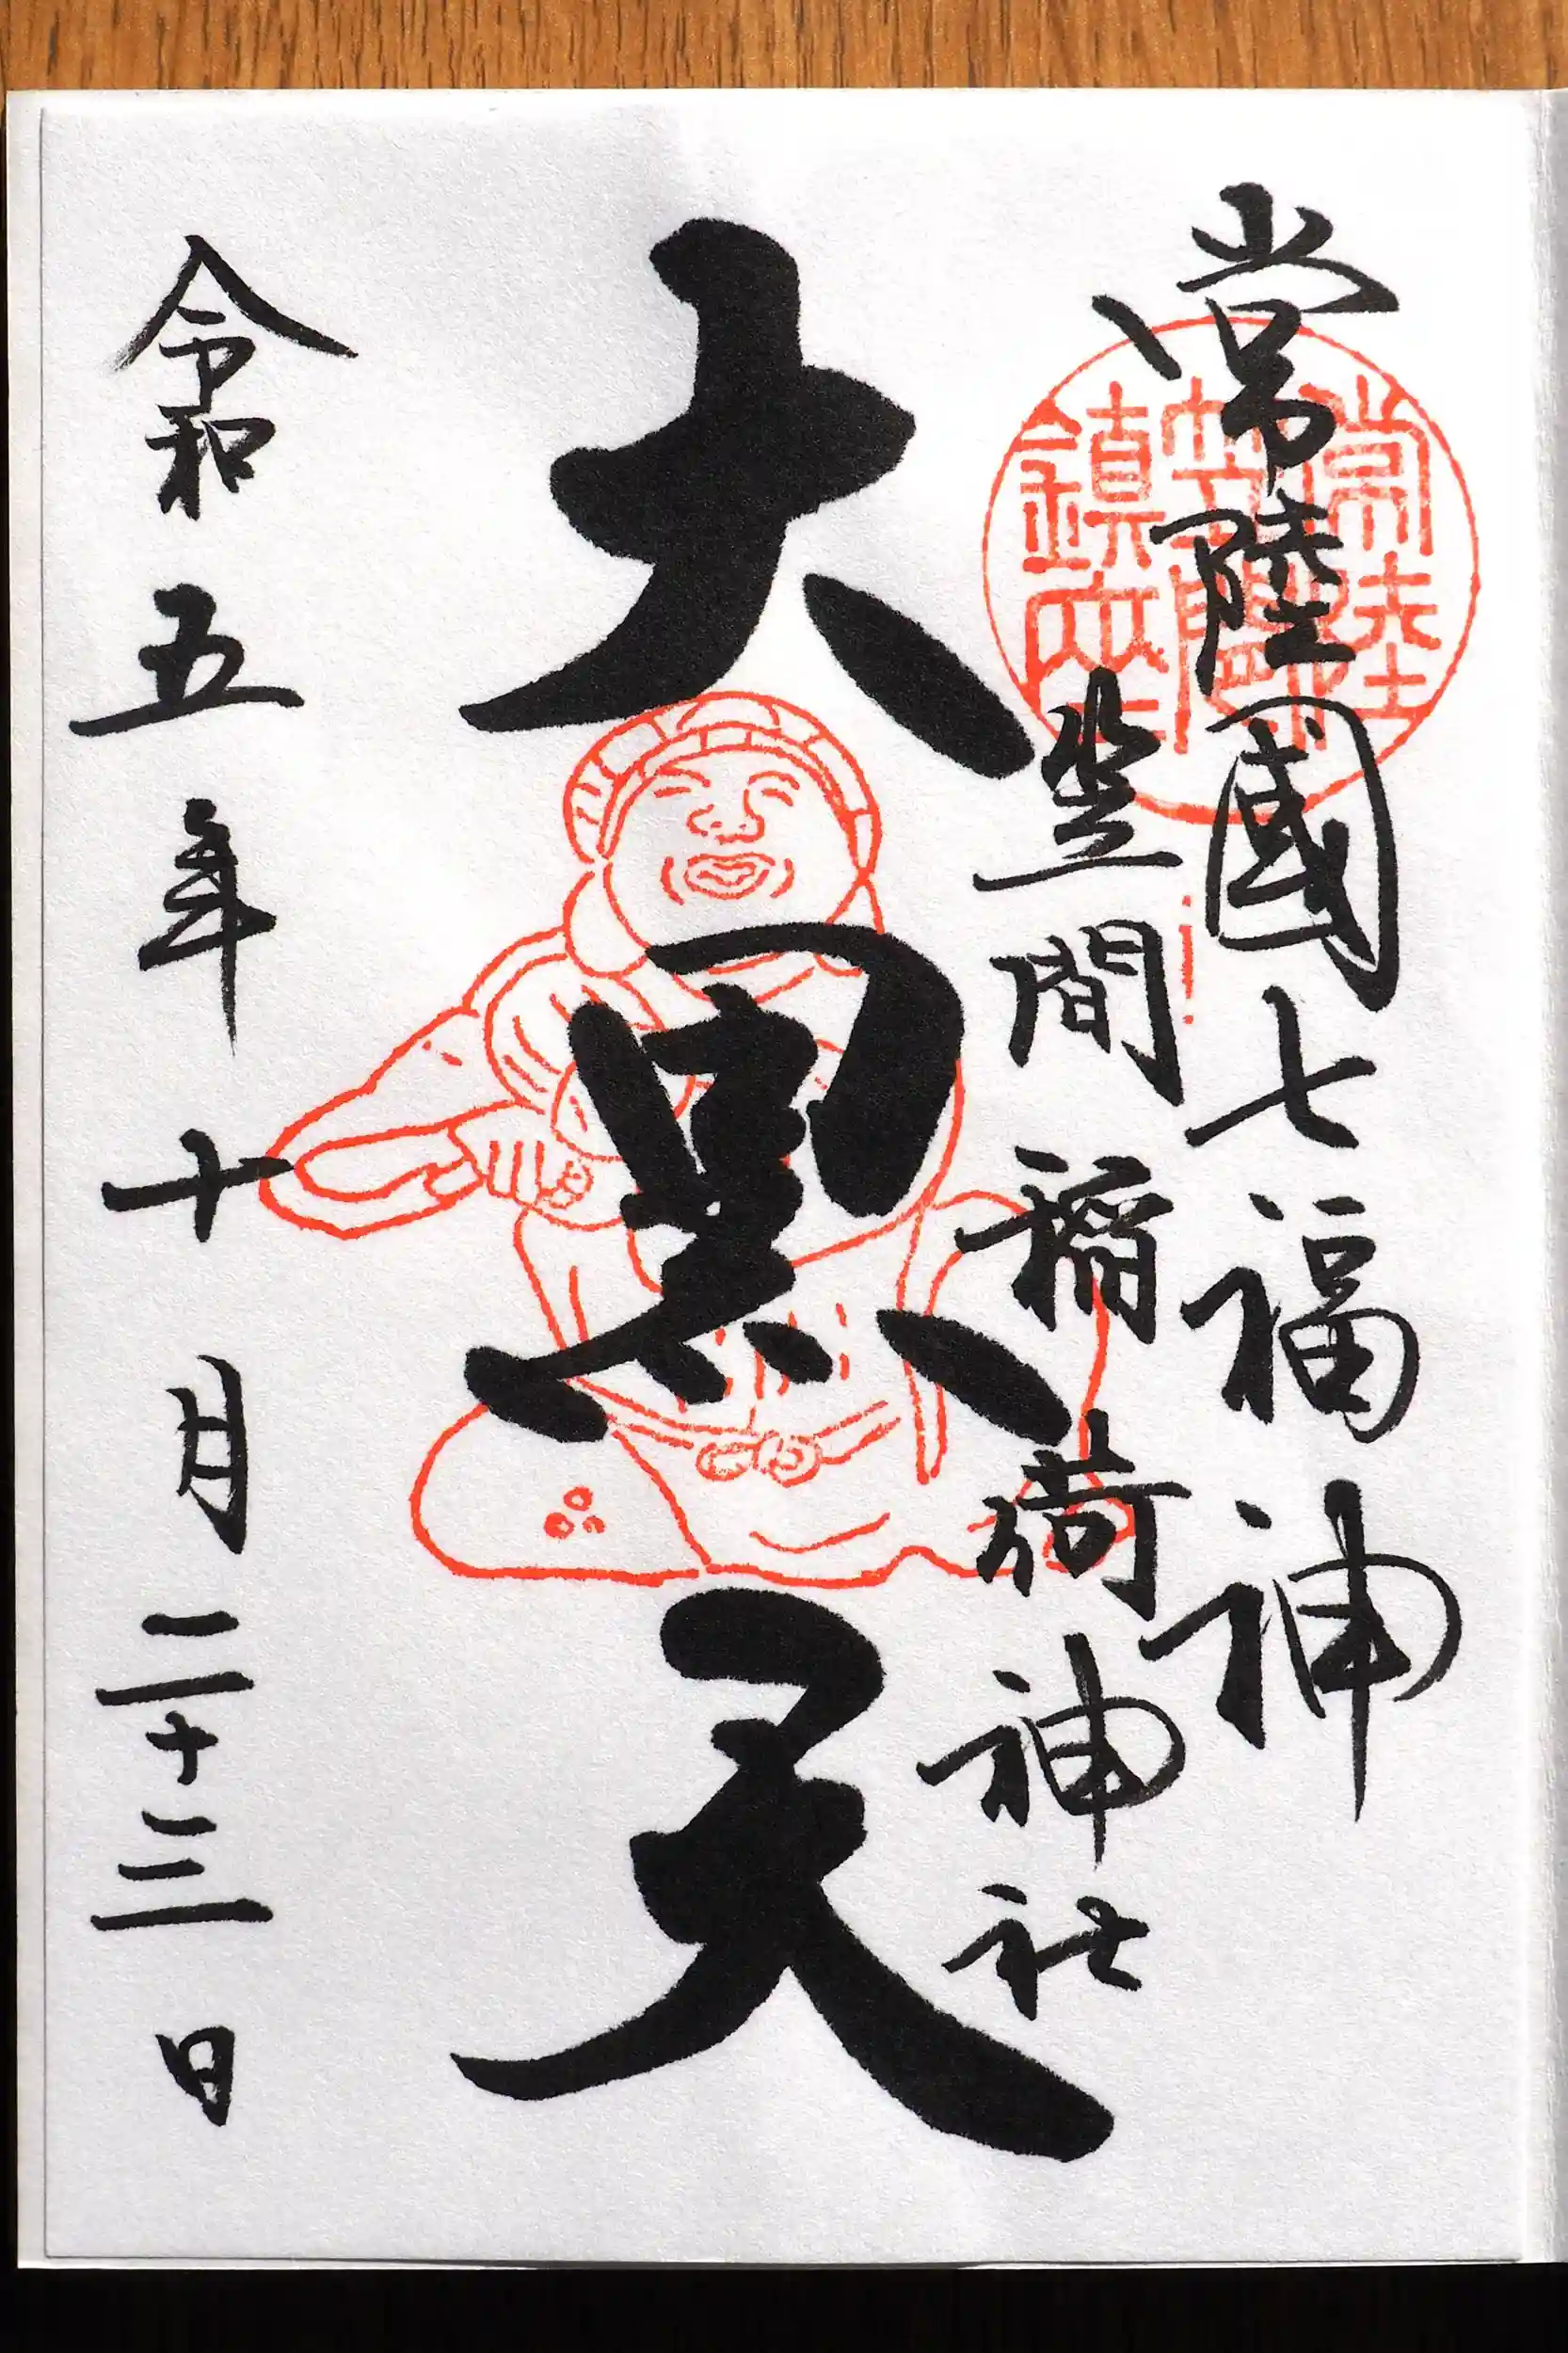 常陸國七福神
笠間稲荷神社
大黒天
令和五年十月二十三日
常陸
鎮座